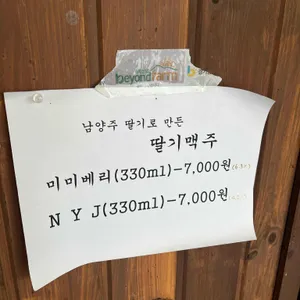 beyond farm
남양주 딸기로 만든
딸기맥주
미미베리(330ml)-7,000원
N Y J(330ml)-7,000원